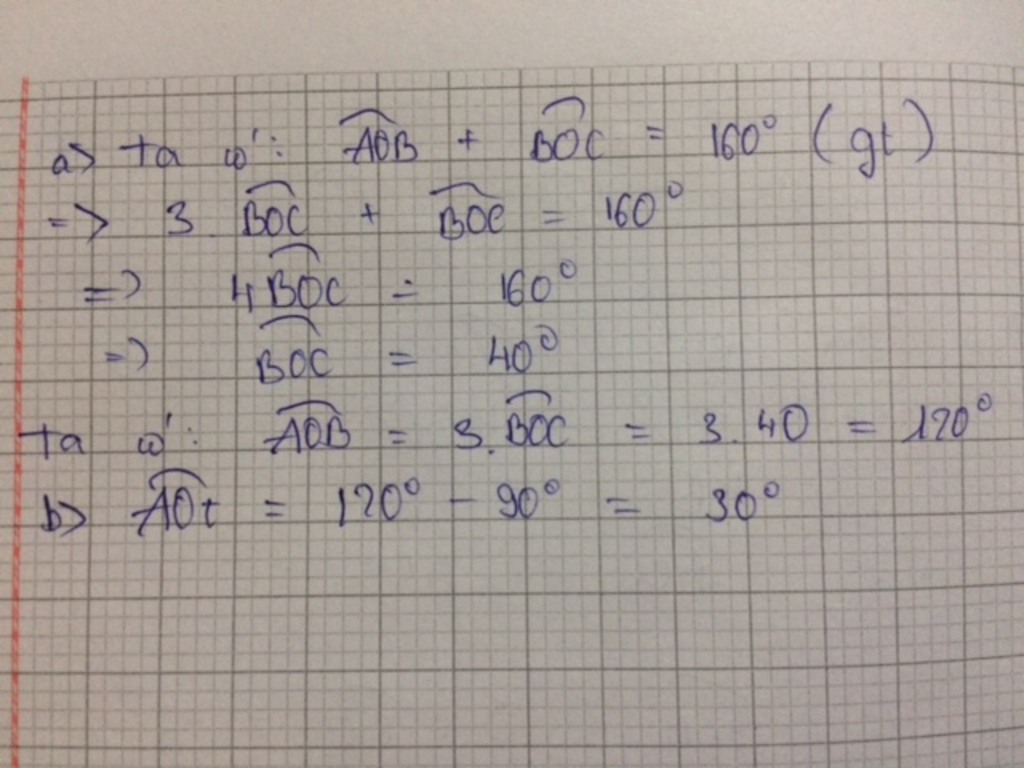 a) ta có: AOB + BOC = 160° (gt)
=> 3. BOC + BOC = 160°
=> 4BOC = 160°
=> BOC = 40°
ta có: AOB = 3.BOC = 3.40 = 120°
b) AOt = 120° - 90° = 30°